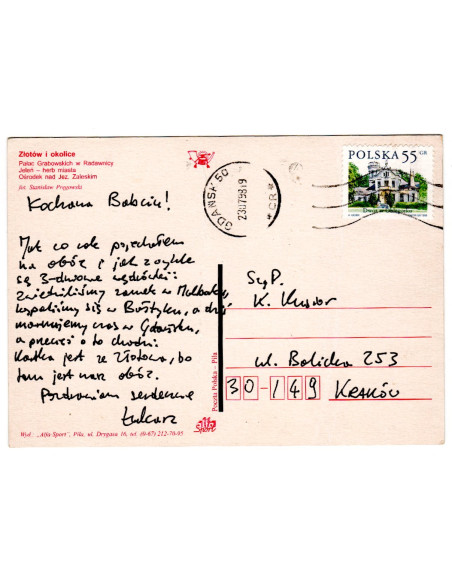 Złotów i okolice
Pałac Grabowskich w Radawnicy
Jeleń – herb miasta
Ośrodek nad Jez. Zaleskim
fot. Stanisław Pręgowski
Kochana Babciu!
Jak co rok pojechałem
na obóz i jak zwykle
są 3-dniowe wędrówki:
Zwiedziliśmy zamek w Malborku,
kąpaliśmy się w Bałtyku, a dziś
marnujemy czas w Gdańsku,
a przecież o to chodzi.
Kartka jest ze Złotowa, bo
tam jest nasz obóz.
Pozdrawiam serdecznie
Łukasz
Wyd.: „Alfa-Sport", Piła, ul. Drygasa 16, tel. (0-67) 212-70-95
Poczta Polska – Piła
alfa
sport
GDAŃSK 50
230798-19
*CR*
POLSKA 55 GR
Sz.P.
K.
ul. 253
30-149 KRAKÓW